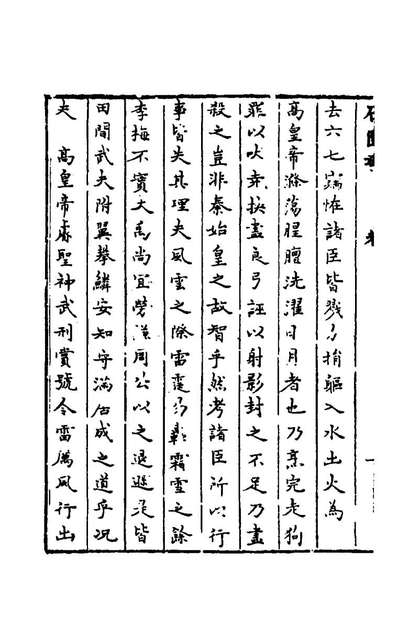 去六七諸臣皆戮力捐軀入水土火為
高皇帝滌蕩腥膻洗濯日月者也乃烹完走狗
罪以吠堯抉盡良弓誣以射影封之不足乃盡
殺之豈非秦始皇之故智乎然考諸臣所以行
事皆失其理夫風雲之際雷霆易霜雪之餘
李梅不實大禹尚宜勞謙周公以之退遜是皆
田間武夫附翼攀鱗安知守滿居成之道乎况
夫 高皇帝聖神武刑賞號令雷厲風行出